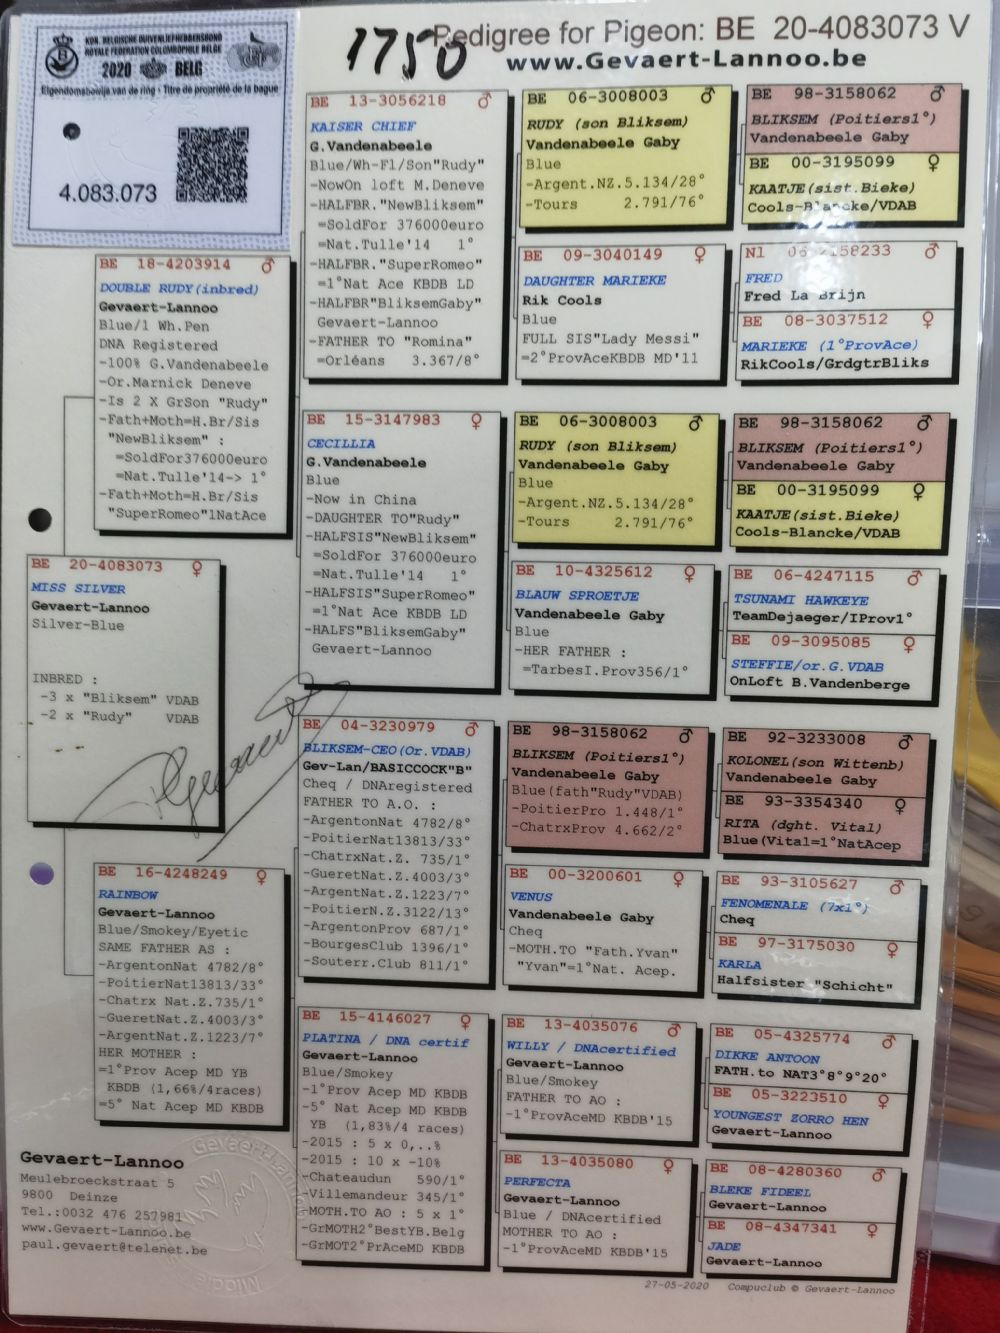 KON. BELGISCHE DUIVENLIEFHEBBERSBOND
ROYALE FEDERATION COLOMBOPHILE BELGE
2020 BELG
Eigendomsbewijs van de ring - Titre de propriété de la bague
4.083.073
1750
Pedigree for Pigeon: BE 20-4083073 V
www.Gevaert-Lannoo.be
BE 20-4083073 ♀
MISS SILVER
Gevaert-Lannoo
Silver-Blue
INBRED :
-3 x "Bliksem" VDAB
-2 x "Rudy" VDAB
BE 18-4203914 ♂
DOUBLE RUDY(inbred)
Gevaert-Lannoo
Blue/1 Wh.Pen
DNA Registered
-100% G.Vandenabeele
-Or.Marnick Deneve
-Is 2 X GrSon "Rudy"
-Fath+Moth=H.Br/Sis
"NewBliksem" :
=SoldFor376000euro
=Nat.Tulle'14-> 1°
-Fath+Moth=H.Br/Sis
"SuperRomeo"1NatAce
BE 16-4248249 ♀
RAINBOW
Gevaert-Lannoo
Blue/Smokey/Eyetic
SAME FATHER AS :
-ArgentonNat 4782/8°
-PoitierNat13813/33°
-Chatrx Nat.Z.735/1°
-GueretNat.Z.4003/3°
-ArgentNat.Z.1223/7°
HER MOTHER :
=1°Prov Acep MD YB
KBDB (1,66%/4races)
=5° Nat Acep MD KBDB
BE 13-3056218 ♂
KAISER CHIEF
G.Vandenabeele
Blue/Wh-Fl/Son"Rudy"
-NowOn loft M.Deneve
-HALFBR."NewBliksem"
=SoldFor 376000euro
=Nat.Tulle'14 1°
-HALFBR."SuperRomeo"
=1°Nat Ace KBDB LD
-HALFBR"BliksemGaby"
Gevaert-Lannoo
-FATHER TO "Romina"
=Orléans 3.367/8°
BE 15-3147983 ♀
CECILLIA
G.Vandenabeele
Blue
-Now in China
-DAUGHTER TO"Rudy"
-HALFSIS"NewBliksem"
=SoldFor 376000euro
=Nat.Tulle'14 1°
-HALFSIS"SuperRomeo"
=1°Nat Ace KBDB LD
-HALFS"BliksemGaby"
Gevaert-Lannoo
BE 04-3230979 ♂
BLIKSEM-CEO(Or.VDAB)
Gev-Lan/BASICCOCK"B"
Cheq / DNAregistered
FATHER TO A.O. :
-ArgentonNat 4782/8°
-PoitierNat13813/33°
-ChatrxNat.Z. 735/1°
-GueretNat.Z.4003/3°
-ArgentNat.Z.1223/7°
-PoitierN.Z.3122/13°
-ArgentonProv 687/1°
-BourgesClub 1396/1°
-Souterr.Club 811/1°
BE 15-4146027 ♀
PLATINA / DNA certif
Gevaert-Lannoo
Blue/Smokey
-1°Prov Acep MD KBDB
-5° Nat Acep MD KBDB
YB (1,83%/4 races)
-2015 : 5 x 0,..%
-2015 : 10 x -10%
-Chateaudun 590/1°
-Villemandeur 345/1°
-MOTH.TO AO : 5 x 1°
-GrMOTH2°BestYB.Belg
-GrMOT2°PrAceMD KBDB
BE 06-3008003 ♂
RUDY (son Bliksem)
Vandenabeele Gaby
Blue
-Argent.NZ.5.134/28°
-Tours 2.791/76°
BE 09-3040149 ♀
DAUGHTER MARIEKE
Rik Cools
Blue
FULL SIS"Lady Messi"
=2°ProvAceKBDB MD'11
BE 06-3008003 ♂
RUDY (son Bliksem)
Vandenabeele Gaby
Blue
-Argent.NZ.5.134/28°
-Tours 2.791/76°
BE 10-4325612 ♀
BLAUW SPROETJE
Vandenabeele Gaby
Blue
-HER FATHER :
=TarbesI.Prov356/1°
BE 98-3158062 ♂
BLIKSEM (Poitiers1°)
Vandenabeele Gaby
Blue(fath"Rudy"VDAB)
-PoitierPro 1.448/1°
-ChatrxProv 4.662/2°
BE 00-3200601 ♀
VENUS
Vandenabeele Gaby
Cheq
-MOTH.TO "Fath.Yvan"
"Yvan"=1°Nat. Acep.
BE 13-4035076 ♂
WILLY / DNAcertified
Gevaert-Lannoo
Blue/Smokey
FATHER TO AO :
-1°ProvAceMD KBDB'15
BE 13-4035080 ♀
PERFECTA
Gevaert-Lannoo
Blue / DNAcertified
MOTHER TO AO :
-1°ProvAceMD KBDB'15
BE 98-3158062 ♂
BLIKSEM (Poitiers1°)
Vandenabeele Gaby
BE 00-3195099 ♀
KAATJE(sist.Bieke)
Cools-Blancke/VDAB
Nl 06-2158233 ♂
FRED
Fred La Brijn
BE 08-3037512 ♀
MARIEKE (1°ProvAce)
RikCools/GrdgtrBliks
BE 98-3158062 ♂
BLIKSEM (Poitiers1°)
Vandenabeele Gaby
BE 00-3195099 ♀
KAATJE(sist.Bieke)
Cools-Blancke/VDAB
BE 06-4247115 ♂
TSUNAMI HAWKEYE
TeamDejaeger/IProv1°
BE 09-3095085 ♀
STEFFIE/or.G.VDAB
OnLoft B.Vandenberge
BE 92-3233008 ♂
KOLONEL(son Wittenb)
Vandenabeele Gaby
BE 93-3354340 ♀
RITA (dght. Vital)
Blue(Vital=1°NatAcep
BE 93-3105627 ♂
FENOMENALE (7x1°)
Cheq
BE 97-3175030 ♀
KARLA
Halfsister "Schicht"
BE 05-4325774 ♂
DIKKE ANTOON
FATH.to NAT3°8°9°20°
BE 05-3223510 ♀
YOUNGEST ZORRO HEN
Gevaert-Lannoo
BE 08-4280360 ♂
BLEKE FIDEEL
Gevaert-Lannoo
BE 08-4347341 ♀
JADE
Gevaert-Lannoo
Gevaert-Lannoo
Meulebroeckstraat 5
9800 Deinze
Tel.:0032 476 257981
www.Gevaert-Lannoo.be
paul.gevaert@telenet.be
27-05-2020 Compuclub © Gevaert-Lannoo